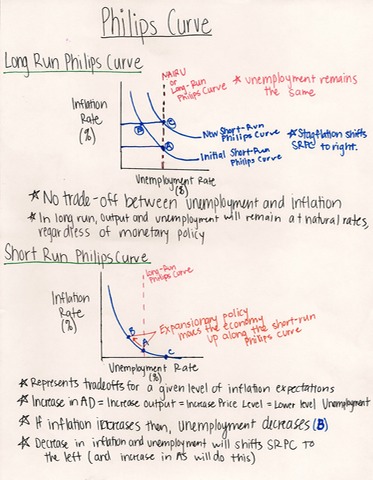 Philips Curve
Long Run Philips Curve
NAIRU
or
Long-Run
Philips Curve
* unemployment remains
the same
Inflation
Rate
(%)
B
C
A
New Short-Run
Philips Curve
Initial Short-Run
Philips Curve
* Stagflation shifts
SRPC to right.
Unemployment Rate
(%)
* No trade-off between unemployment and inflation
* In long run, output and unemployment will remain at natural rates,
regardless of monetary policy
Short Run Philips Curve
Long-Run
Philips Curve
Inflation
Rate
(%)
B
A
C
Expansionary policy
moves the economy
up along the short-run
Philips curve
Unemployment Rate
(%)
* Represents tradeoffs for a given level of inflation expectations
* Increase in AD = Increase output = Increase Price Level = Lower level Unemployment
* If inflation increases then, unemployment decreases (B)
* Decrease in inflation and unemployment will shifts SRPC to
the left (and increase in AS will do this)